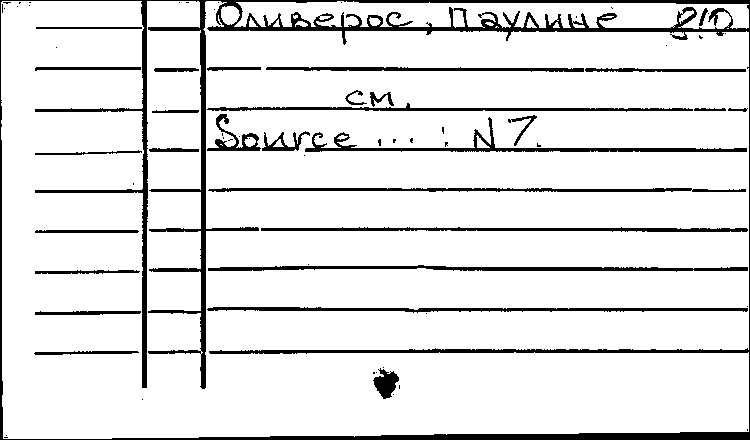 Оливерос, Паулине
см.
Source ... : N 7.